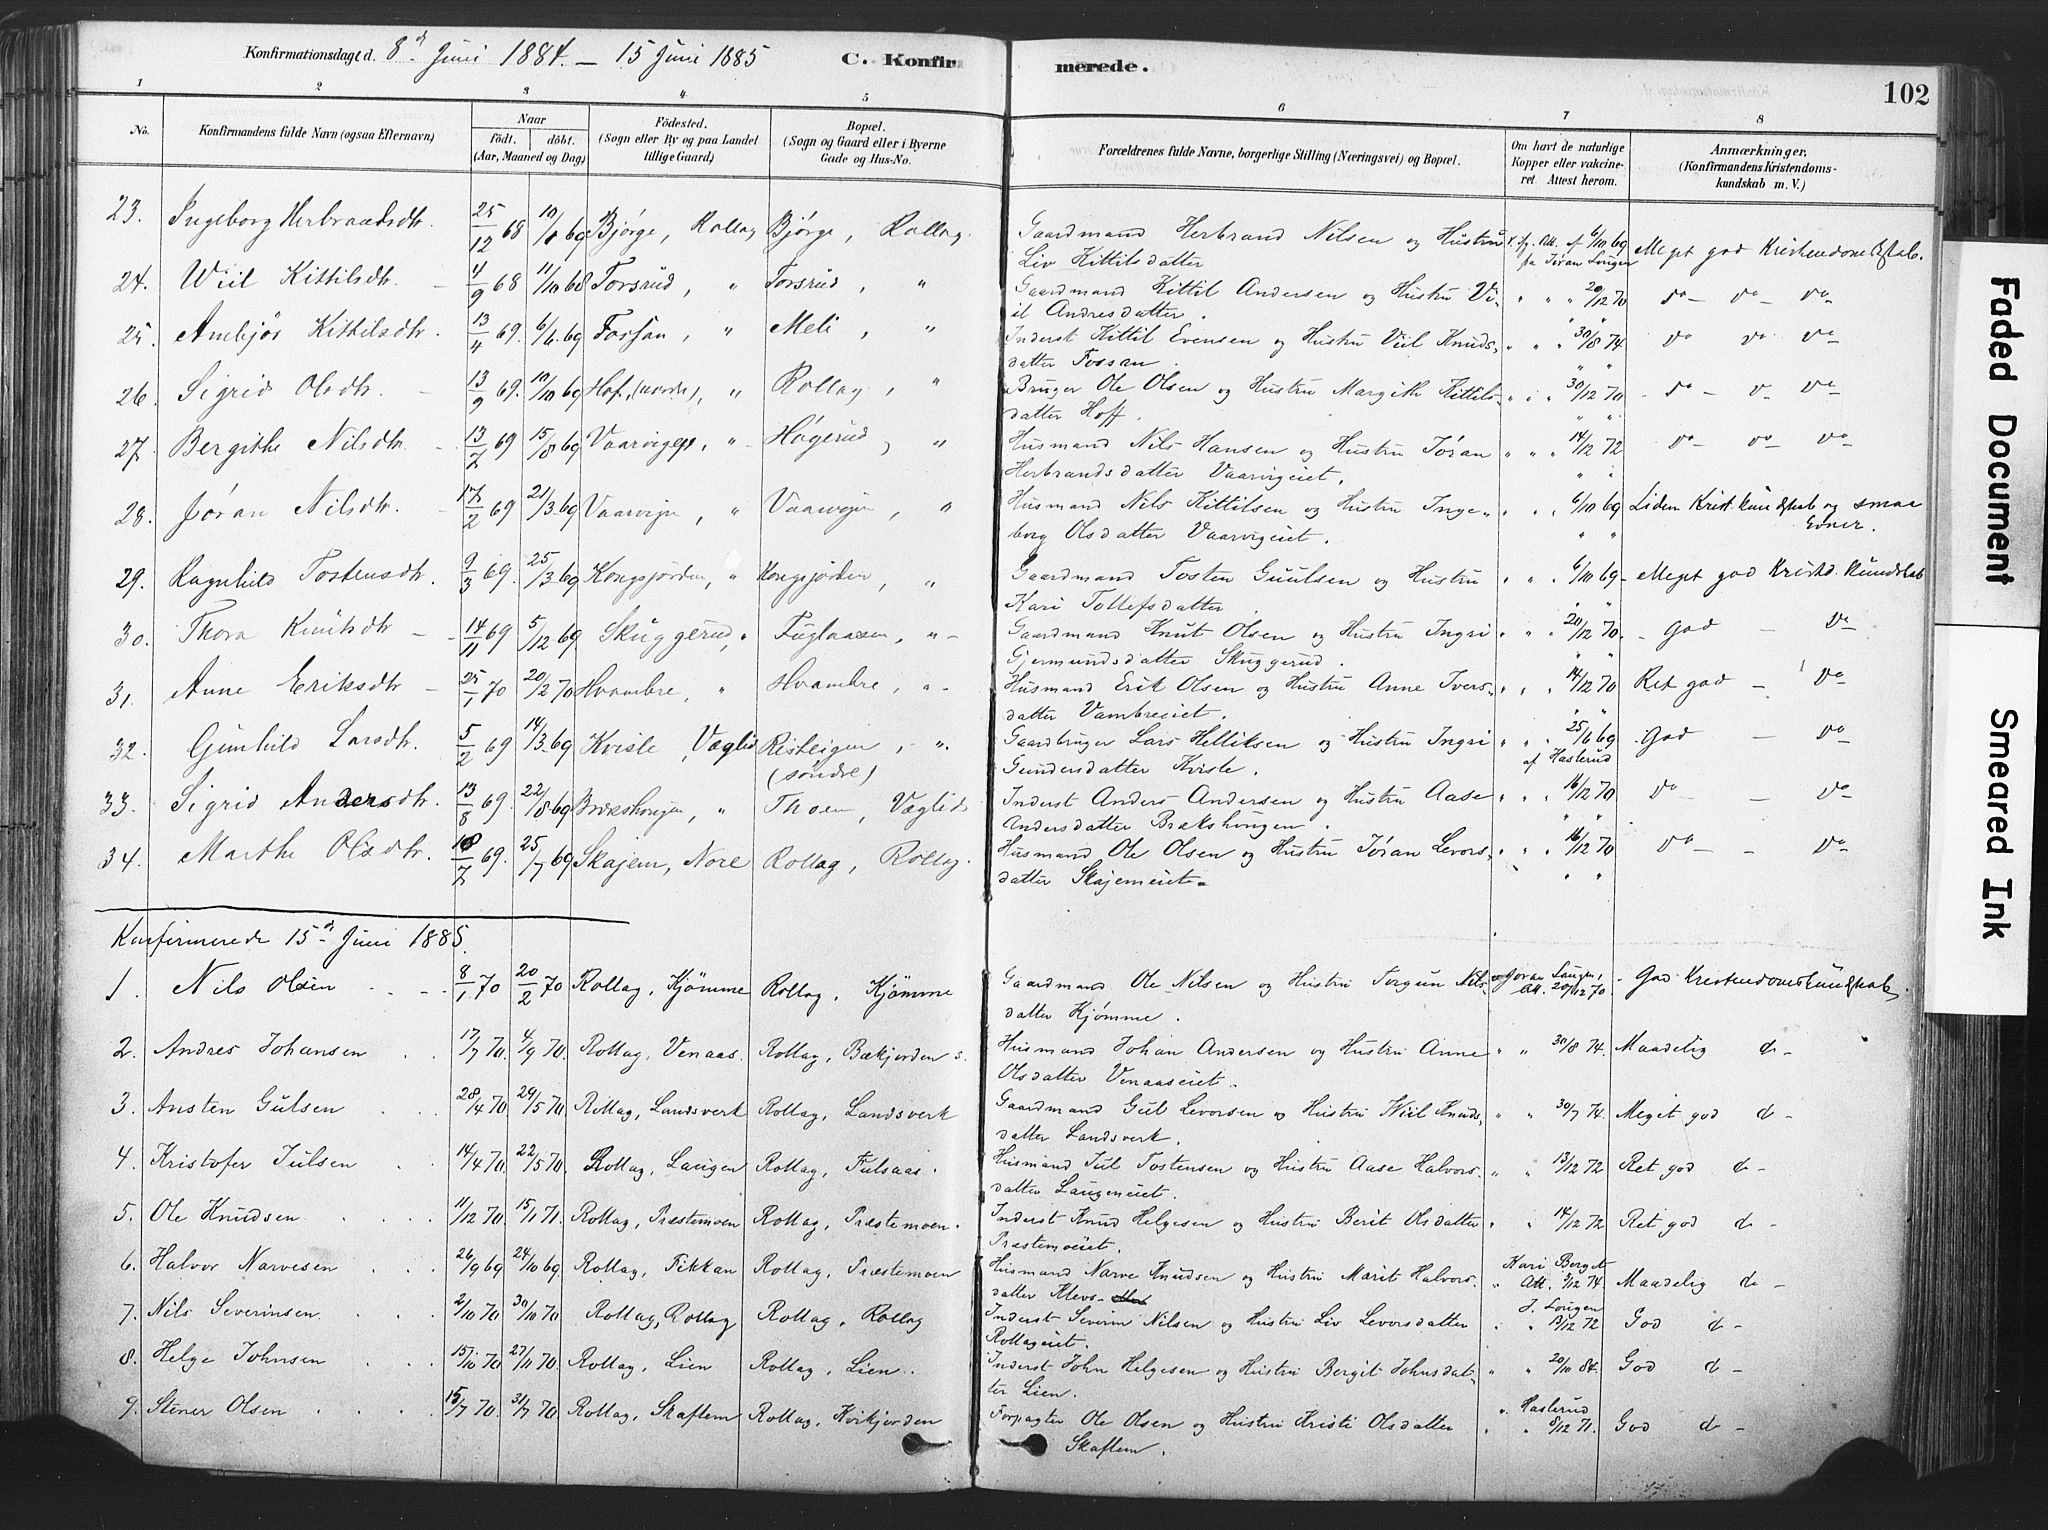 Konfirmationsdage d. 8d Juni 1884. — 15 Juni 1885 C. Konfirmerede. 102
1 2 3 4 5 6 7 8
No. Konfirmandens fulde Navn (ogsaa Efternavn) Naar født. døbt. (Aar, Maaned og Dag) Fødested. (Sogn eller By og paa Landet tillige Gaard) Bopæl. (Sogn og Gaard eller i Byerne Gade og Hus-No. Forældrenes fulde Navne, borgerlige Stilling (Næringsvei) og Bopæl. Om havt de naturlige Kopper eller vakcineret. Attest herom. Anmærkninger. (Konfirmandens Kristendomskundskab m. V.)
23. Ingeborg Herbrandsdtr. 25/12 68 10/1 69 Bjørge, Rollag Bjørge, Rollag. Gaardmand Herbrand Nilsen og Hustru Att. af 6/10 69 Meget god Kristendomskskab.
Liv Kittilsdatter fra Jøran Lougen
24. Wiil Kittilsdtr. 4/9 68 11/10 68 Forsrud, " Forsrud, " Gaardmand Kittil Andersen og Hustru Vi- " " " 20/12 70 do — do — do
il Andresdatter.
25. Anebjør Kittilsdtr. 13/4 69. 6/6 69 Fossan, " Meli, " Inderst Kittil Evensen og Hustru Viil Knuds- " " " 30/8 74 do do do
datter Fossan.
26. Sigrid Olsdtr. — 13/9 69. 10/10 69 Hof, (nordre), " Rollag, " Bruger Ole Olsen og Hustru Margith Kittils- " " " 30/12 70 - do — do — do
datter Hoff.
27. Bergithe Nilsdtr. - 13/7 69 15/8 69 Vaarvigeje, " Høgerud, " Husmand Nils Hansen og Hustru Jøran " " " 14/12 72 do — do — do
Herbrandsdatter Vaarvigeiet.
28. Jøran Nilsdtr. 17/2 69 21/3 69 Vaarvigen, " Vaarvigen, " Husmand Nils Kittilsen og Hustru Inge- " " " 6/10 69 Liden Krist. kundskab og smaa
borg Olsdatter Vaarvigeiet. Evner.
29. Ragnhild Tostensdtr. 9/3 69. 25/3 69 Kongsjorden, " Kongsjorden, " Gaardmand Tosten Guulsen og Hustru " " " 6/10 69 - Meget god Kristd. kundskab
Kari Tollefsdatter.
30. Thora Knutsdtr — 14/11 69 5/12 69 Skuggerud, " Fuglaasen, " - Gaardmand Knut Olsen og Hustru Ingri " " " 20/12 70. - God — do
Gjermundsdatter Skuggerud.
31. Anne Eriksdtr — 25/1 70 20/2 70 Hvambre, " Hvambre, " - Husmand Erik Olsen og Hustru Anne Ivers- " " " 14/12 70 Ret god — do
datter Vambreeiet.
32. Gunhild Larsdtr. 5/2 69 14/3 69 Kvisle, Væglid Risteigen, ". Gaardbruger Lars Helliksen og Hustru Ingri " " " 25/6 69 . God — do
(søndre) Gundersdatter Kvisle. af Haslerud
33. Sigrid Andersdtr. 13/8 69. 22/8 69 Brækshongen, " Thoen, Væglid Inderst Anders Andersen og Hustru Aase " " " 16/12 70 do — — do
Andersdatter Brækshongen.
34. Marthe Olsdtr. 18/7 69. 25/7 69 Skajem, Nore Rollag, Rollag. Husmand Ole Olsen og Hustru Jøran Levors- " " " 16/12 70 do — - do
datter Skajemeiet.
Konfirmerede 15d Juni 1885.
1. Nils Olsen 8/1 70 20/2 70 Rollag, Kjömme Rollag, Kjömme Gaardmand Ole Nilsen og Hustru Torgun Nils- Jøran Laugen, Att. 20/12 70 - God Kristendomskundskab
datter Kjömme.
2. Andres Johansen 17/7 70. 4/9 70. Rollag, Venaas. Rollag, Bækjorden s. Husmand Johan Andersen og Hustru Anne " " 30/8 74. Maadelig d -
Olsdatter Venaaseiet.
3. Ansten Gulsen 28/4 70 29/5 70 Rollag, Landsverk Rollag, Landsverk Gaardmand Gul Levorsen og Hustru Wiil Knuds- " " 30/7 74. Meget god d -
datter Landsverk.
4. Kristofer Julsen 14/4 70. 22/5 70. Rollag, Laugen Rollag, Fulsaas. Husmand Jul Tostensen og Hustru Aase Halvors- " " 13/12 72 Ret god d -
datter Laugeneiet.
5. Ole Knudsen 11/12 70. 15/1 71. Rollag, Præstemoen Rollag, Præstemoen. Inderst Knud Helgesen og Hustru Berit Olsdatter " " 14/12 72 Ret god d -
Præstemoeiet.
6. Halvor Narvesen 26/9 69 24/10 69. Rollag, Fikkan Rollag, Præstemoen Husmand Narve Knudsen og Hustru Marit Halvors- Kari Berget " Att. 5/12 74. Maadelig d -
datter Klevs-
7. Nils Severinsen 2/10 70 30/10 70 Rollag, Rollag Rollag, Rollag Inderst Severin Nilsen og Hustru Liv Levorsdatter J. Lougen " 13/12 72 God d -
Rollageiet.
8. Helge Johnsen 15/10 70 27/11 70. Rollag, Lien Rollag, Lien. Inderst John Helgesen og Hustru Bergit Johnsdat- " " 20/10 84. God d -
ter Lien.
9. Stener Olsen 15/7 70. 31/7 70 Rollag, Skaftem Rollag, Kvikjorden Forpagter Ole Olsen og Hustru Kristi Olsdatter " Haslerud " 8/12 71. God d -
Skaftem.
Faded Document
Smeared Ink